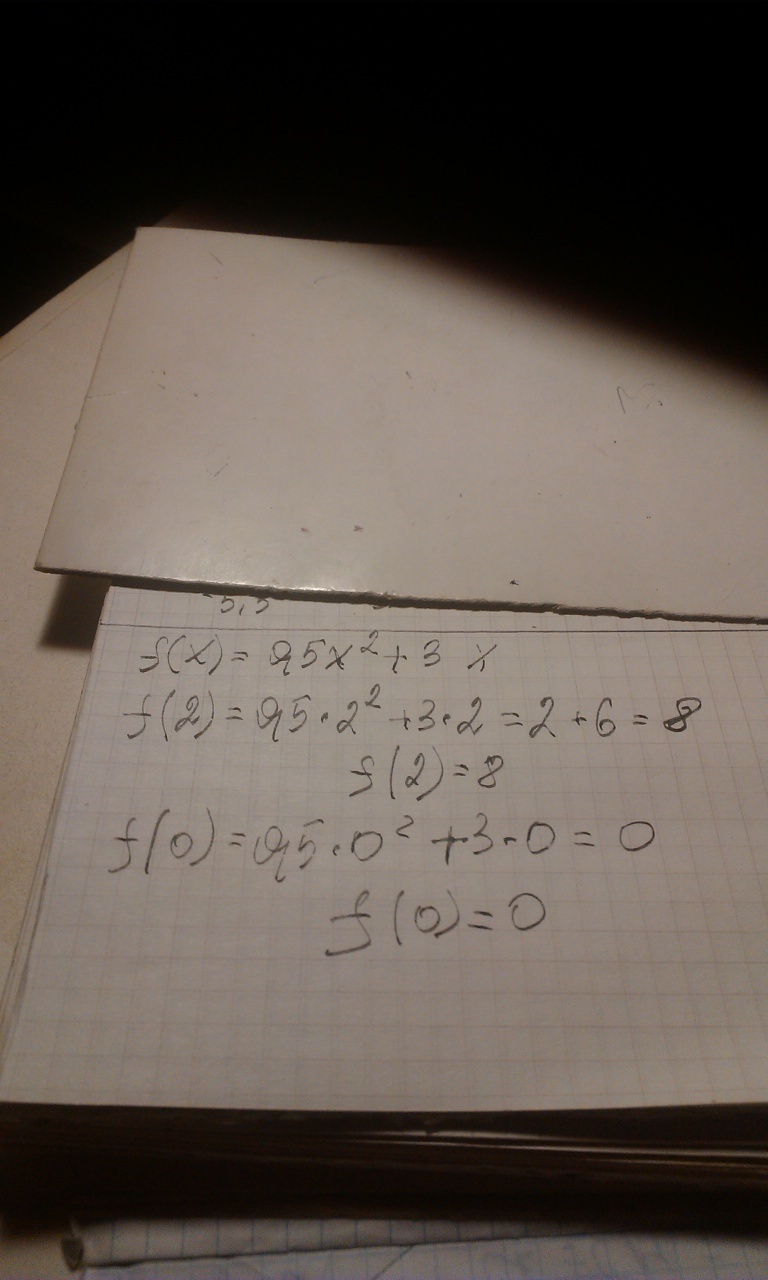 f(x) = 0,5x² + 3 x
f(2) = 0,5·2² + 3·2 = 2 + 6 = 8
f(2) = 8
f(0) = 0,5·0² + 3·0 = 0
f(0) = 0